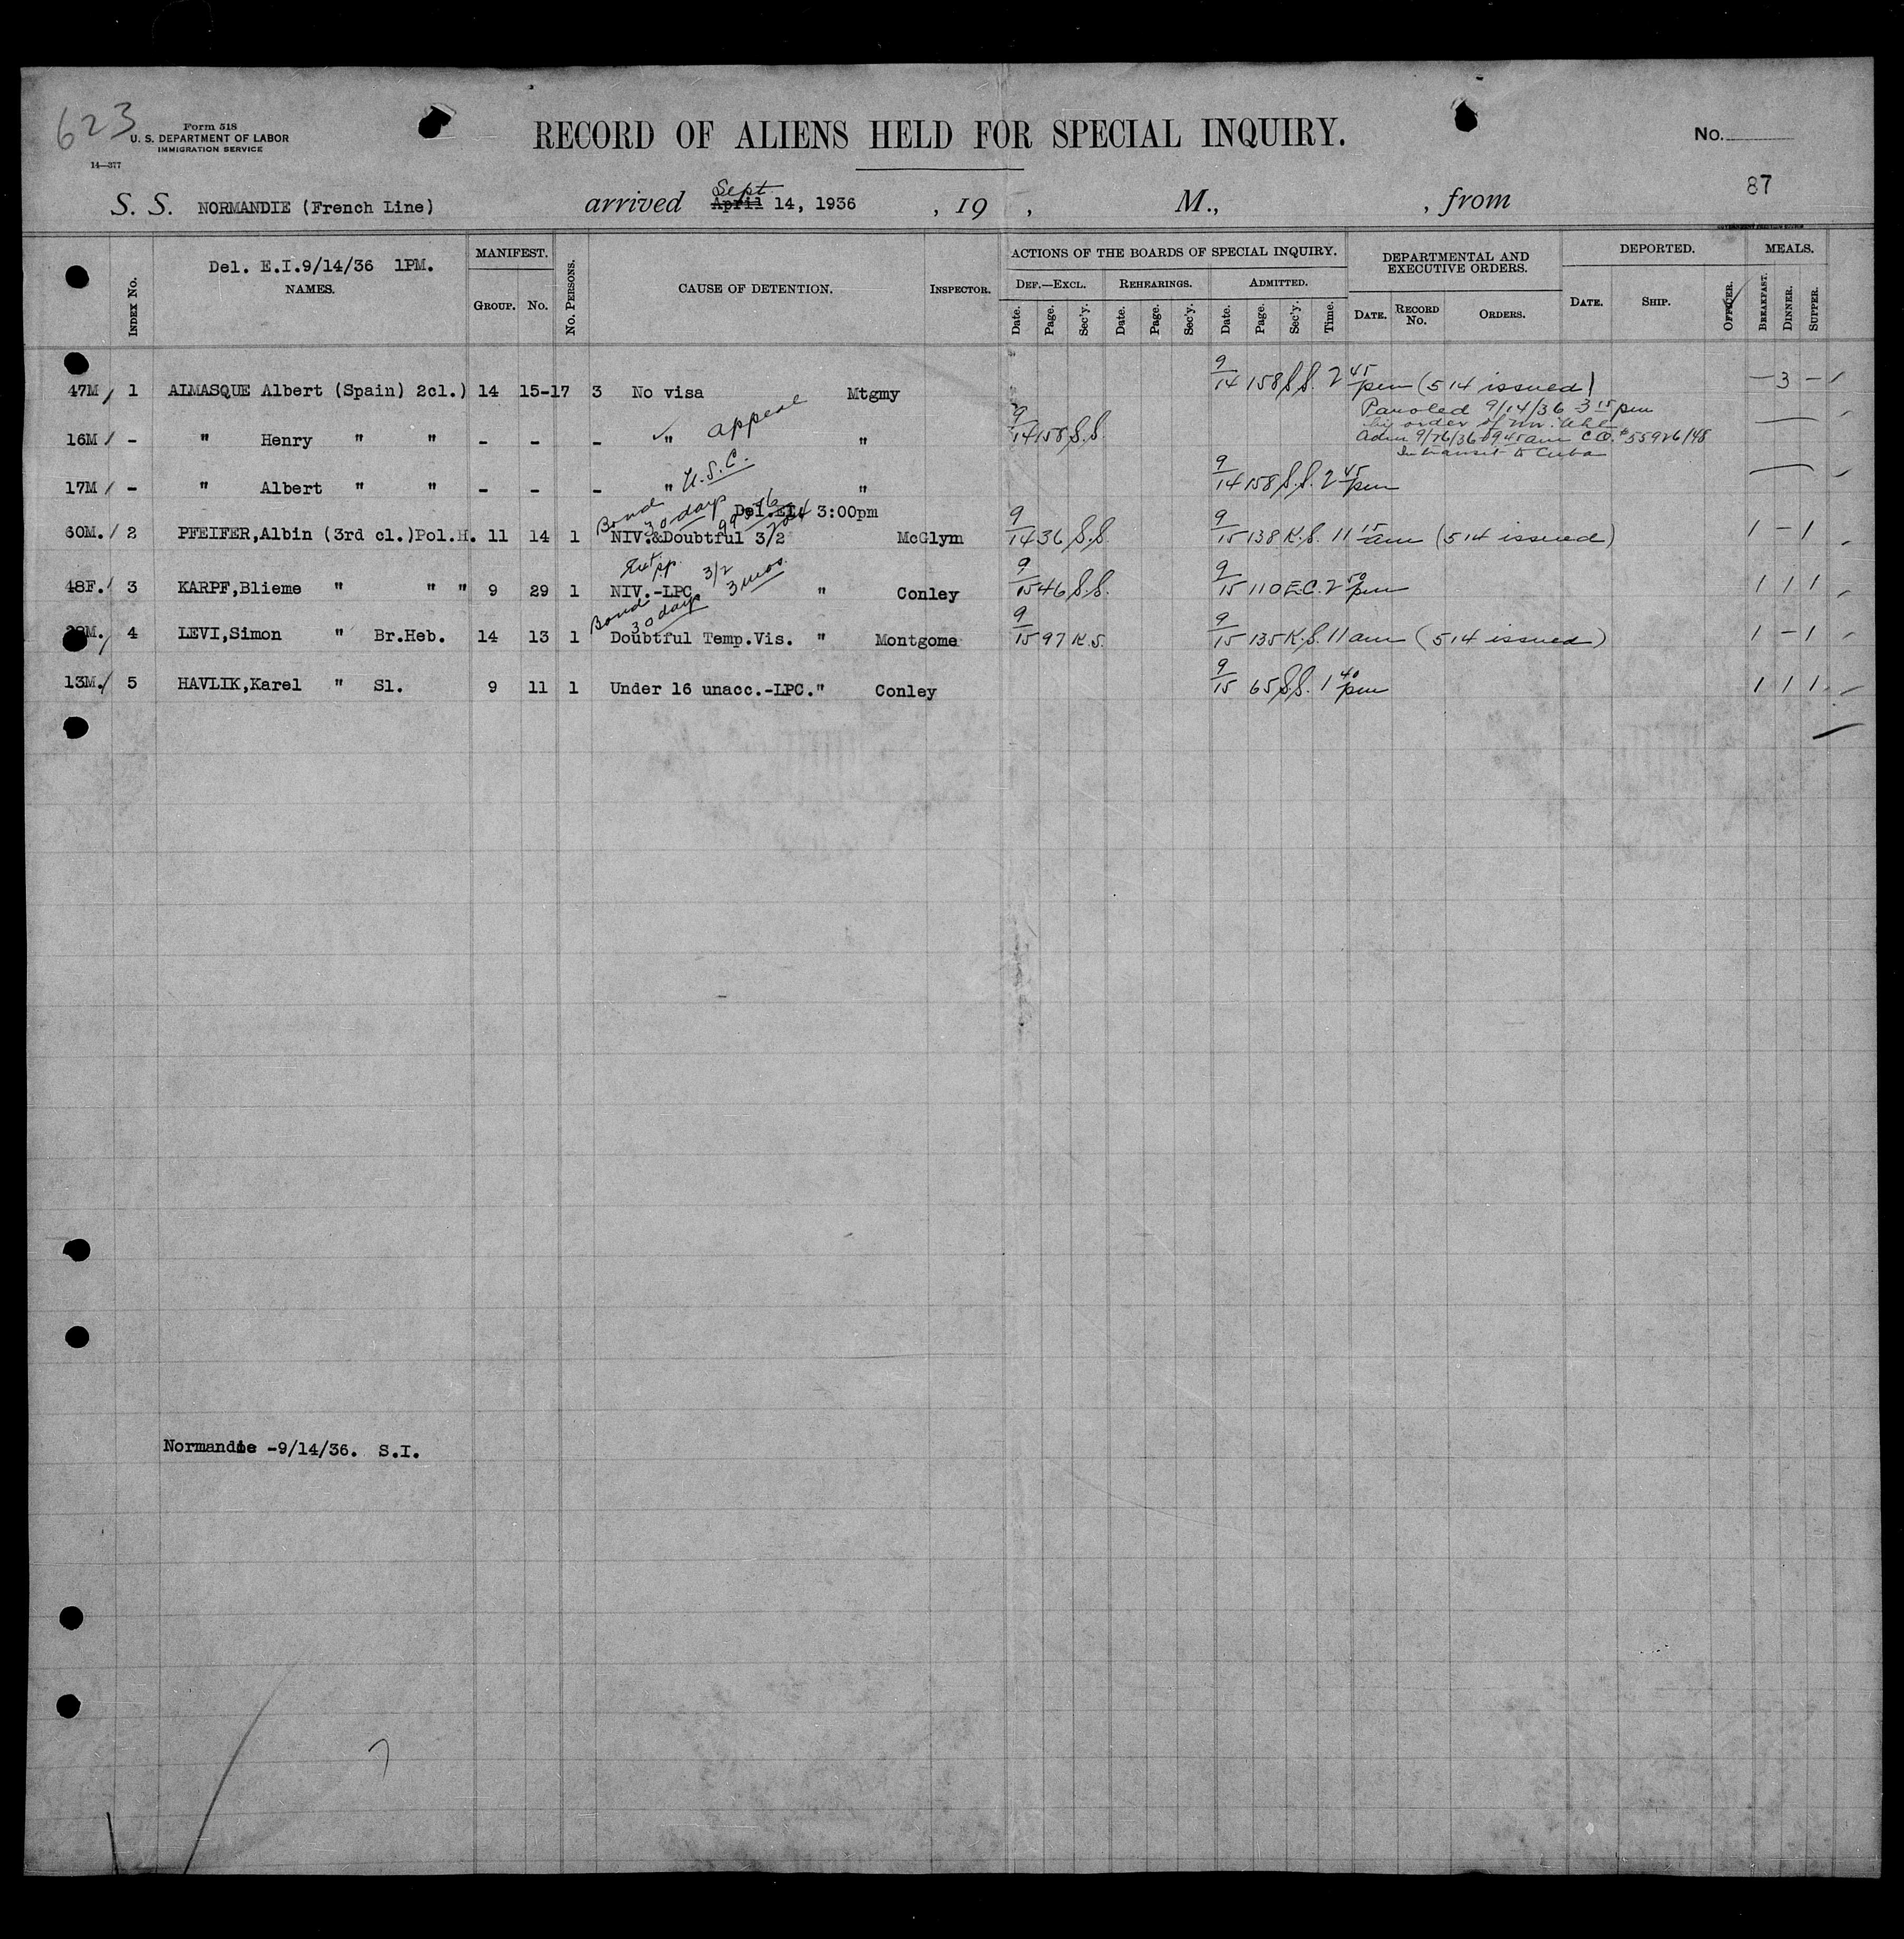 623
Form 518
U. S. DEPARTMENT OF LABOR
IMMIGRATION SERVICE
14—377
RECORD OF ALIENS HELD FOR SPECIAL INQUIRY.
No.
87
S. S. NORMANDIE (French Line) arrived Sept April 14, 1936 , 19 , M., , from
Del. E.I.9/14/36 1PM.
INDEX No. NAMES. MANIFEST. GROUP. No. No. PERSONS. CAUSE OF DETENTION. INSPECTOR. ACTIONS OF THE BOARDS OF SPECIAL INQUIRY. DEF.—EXCL. Date. Page. Sec'y. REHEARINGS. Date. Page. Sec'y. ADMITTED. Date. Page. Sec'y. Time. DEPARTMENTAL AND EXECUTIVE ORDERS. DATE. RECORD No. ORDERS. DEPORTED. DATE. SHIP. OFFICER. MEALS. BREAKFAST. DINNER. SUPPER.
47M / 1 ALMASQUE Albert (Spain) 2cl.) 14 15-17 3 No visa Mtgmy 9/14 158 S.S. 2 45 pm (514 issued) — 3 —
Paroled 9/14/36 3 15 pm
by order of Mr. Uhl
16M / - " Henry " " - - - ✓ " appeal " 9/14 158 S.S. Adm 9/26/36 9 45 am C.O. #55926/148
In transit to Cuba
17M / - " Albert " " - - - " U.S.C. " 9/14 158 S.S. 2 45 pm
Bond 30 days Del. EI. 3:00pm
60M. / 2 PFEIFER,Albin (3rd cl.)Pol.H. 11 14 1 NIV.&Doubtful 3/2 McGlym 9/14 36 S.S. 9/15 138 K.S. 11 15 am (514 issued) 1 — 1
3/2 3 mos.
48F. / 3 KARPF,Blieme " " " 9 29 1 NIV.-LPC " Conley 9/15 46 S.S. 9/15 110 E.C. 2 50 pm 1 1 1
Bond 30 days
M. / 4 LEVI,Simon " Br.Heb. 14 13 1 Doubtful Temp.Vis. " Montgome 9/15 97 K.S. 9/15 135 K.S. 11 am (514 issued) 1 — 1
13M. / 5 HAVLIK,Karel " Sl. 9 11 1 Under 16 unacc.-LPC." Conley 9/15 65 S.S. 1 40 pm 1 1 1
Normandie -9/14/36. S.I.